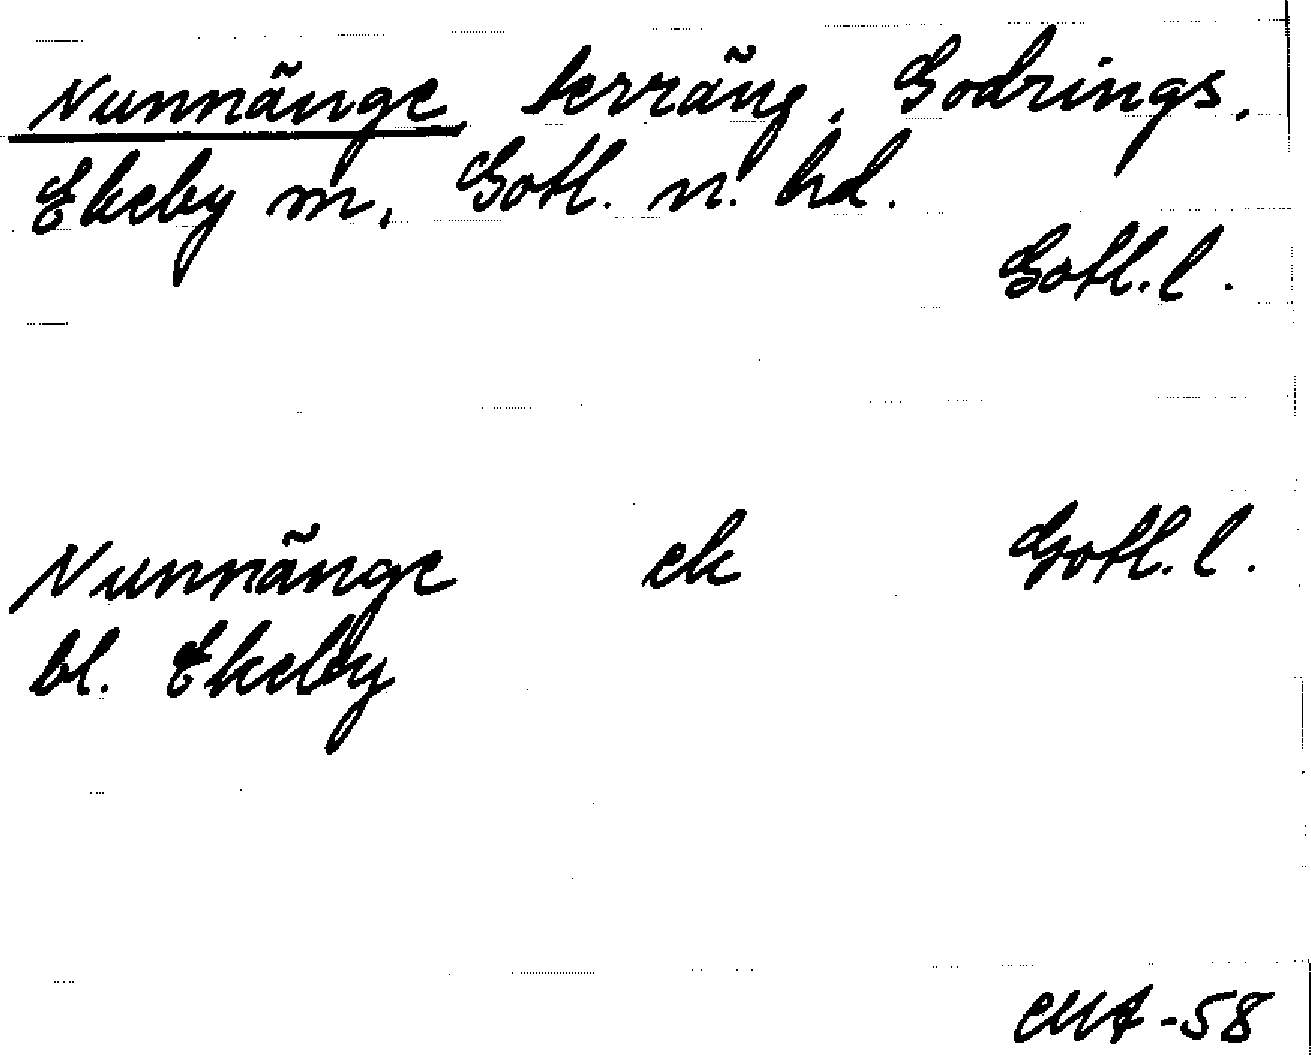 Nunnänge, terräng, Godrings,
Ekeby m, Gotl. n. hd.
Gotl. l.
Nunnänge ek Gotl. l.
bl. Ekeby
CMA-58